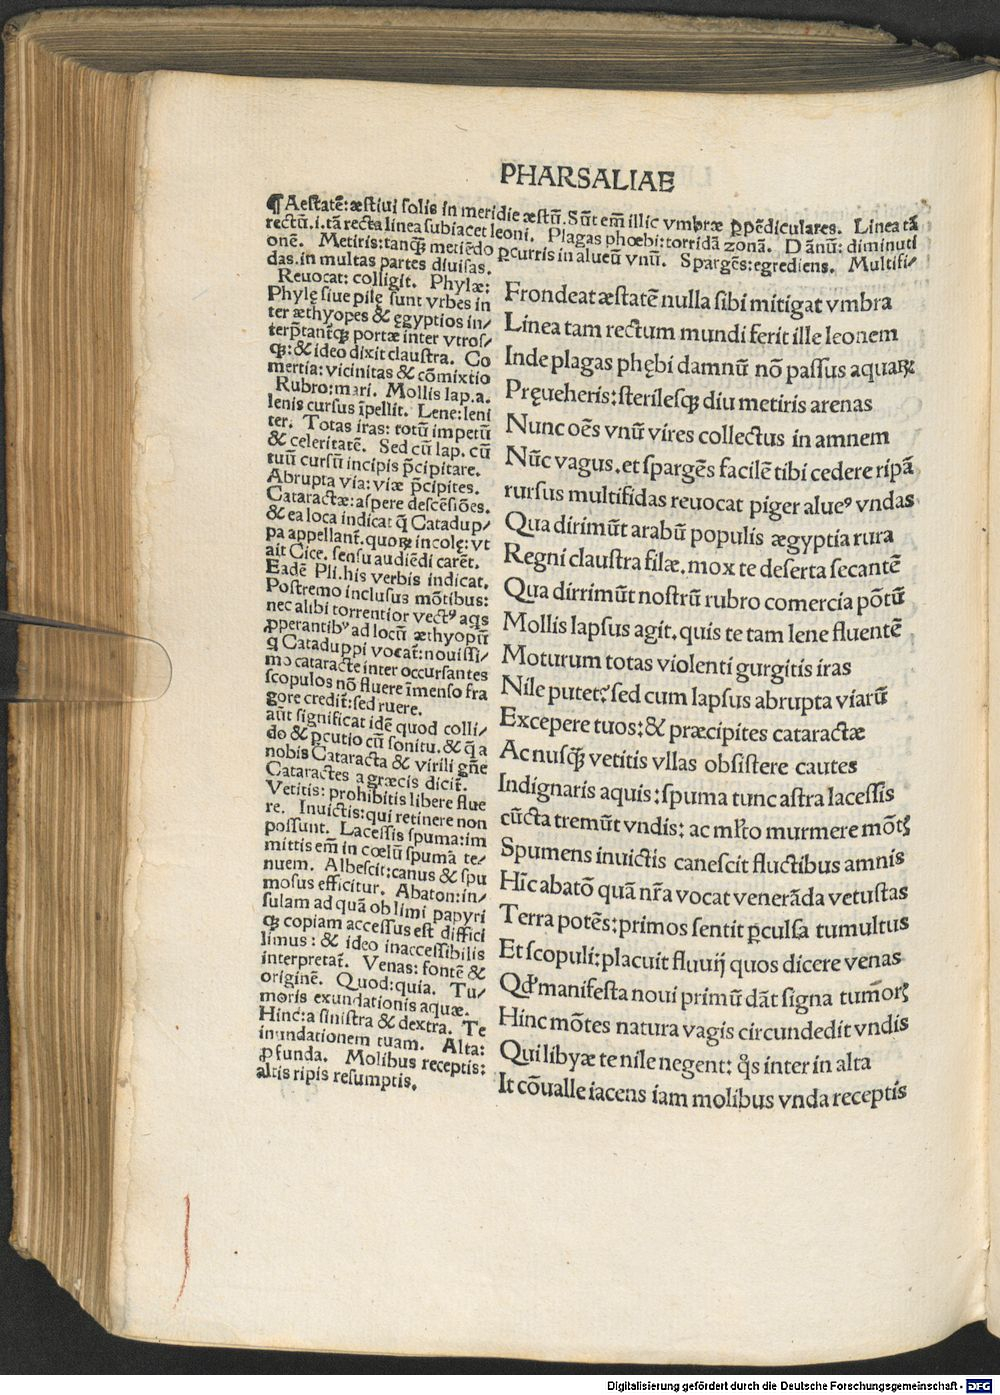 PHARSALIAE
¶Aestatē: æstiui solis in meridie æstū. Sūt em̄ illic vmbræ ꝑpēdiculares. Linea tā
rectū.i.tā recta linea subiacet leoni. Plagas phœbi: torridā zonā. Dānū: diminuti
onē. Metiris: tanqꝫ metiēdo ꝑcurris in alueū vnū. Spargēs: egrediens. Multifi/
das. in multas partes diuisas.
Reuocat: colligit. Phylæ:
Phylę siue pilę sunt vrbes in
ter æthyopes & ęgyptios in/
terp̄tantqꝫ portæ inter vtros/
qꝫ: & ideo dixit claustra. Co
mertia: vicinitas & cōmixtio
Rubro: mari. Mollis lap.a.
lenis cursus īpellit. Lene: leni
ter. Totas iras: totū impetū
& celeritatē. Sed cū lap. cū
tuū cursū incipis p̄cipitare.
Abrupta via: viæ p̄cipites.
Cataractæ: aspere descēsiōes.
& ea loca indicat q̄ Catadup/
pa appellant̄. quoꝝ incolę: vt
ait Cice. sensu audiēdi carēt.
Eadē Pli. his verbis indicat.
Postremo inclusus mōtibus:
nec alibi torrentior vectꝰ aqs
ꝓperantibꝰ ad locū æthyopū
q Cataduppi vocat̄: nouissi/
mo cataracte inter occursantes
scopulos nō fluere īmenso fra
gore credit̄: sed ruere.
aūt significat idē quod colli/
do & ꝑcutio cū sonitu. & q̄ a
nobis Cataracta & virili gn̄e
Cataractes a græcis dicit̄.
Vetitis: prohibitis libere flue
re. Inuictis: qui retinere non
possunt. Lacessis spuma: im
mittis em̄ in cœlū spumā te/
nuem. Albescit: canus & spu
mosus efficitur. Abaton: in/
sulam ad quā ob limi papyri
qꝫ copiam accessus est diffici
limus: & ideo inaccessibilis
interpretat̄. Venas: fontē &
originē. Quod: quia. Tu/
moris exundationis aquæ.
Hinc: a sinistra & dextra. Te
inundationem tuam. Alta:
ꝓfunda. Molibus receptis:
altis ripis resumptis.
Frondeat æstatē nulla sibi mitigat vmbra
Linea tam rectum mundi ferit ille leonem
Inde plagas phębi damnū nō passus aquaꝝ
Pręueheris: sterilesqꝫ diu metiris arenas
Nunc oēs vnū vires collectus in amnem
Nūc vagus. et spargēs facilē tibi cedere ripā
rursus multifidas reuocat piger alueꝰ vndas
Qua dirimūt arabū populis ægyptia rura
Regni claustra filæ. mox te deserta secantē
Qua dirrimūt nostrū rubro comercia pōtū
Mollis lapsus agit. quis te tam lene fluentē
Moturum totas violenti gurgitis iras
Nile putet? sed cum lapsus abrupta viarū
Excepere tuos: & præcipites cataractæ
Ac nusqꝫ̄ vetitis vllas obsistere cautes
Indignaris aquis: spuma tunc astra lacessis
cūcta tremūt vndis: ac ml̄to murmere mōtꝭ
Spumens inuictis canescit fluctibus amnis
Hīc abatō quā nr̄a vocat venerāda vetustas
Terra potēs: primos sentit ꝑculsa tumultus
Et scopuli: placuit fluuij quos dicere venas
Qđ manifesta noui primū dāt signa tumorꝭ
Hinc mōtes natura vagis circundedit vndis
Qui libyæ te nile negent: q̊s inter in alta
It cōualle iacens iam molibus vnda receptis
Digitalisierung gefördert durch die Deutsche Forschungsgemeinschaft - DFG